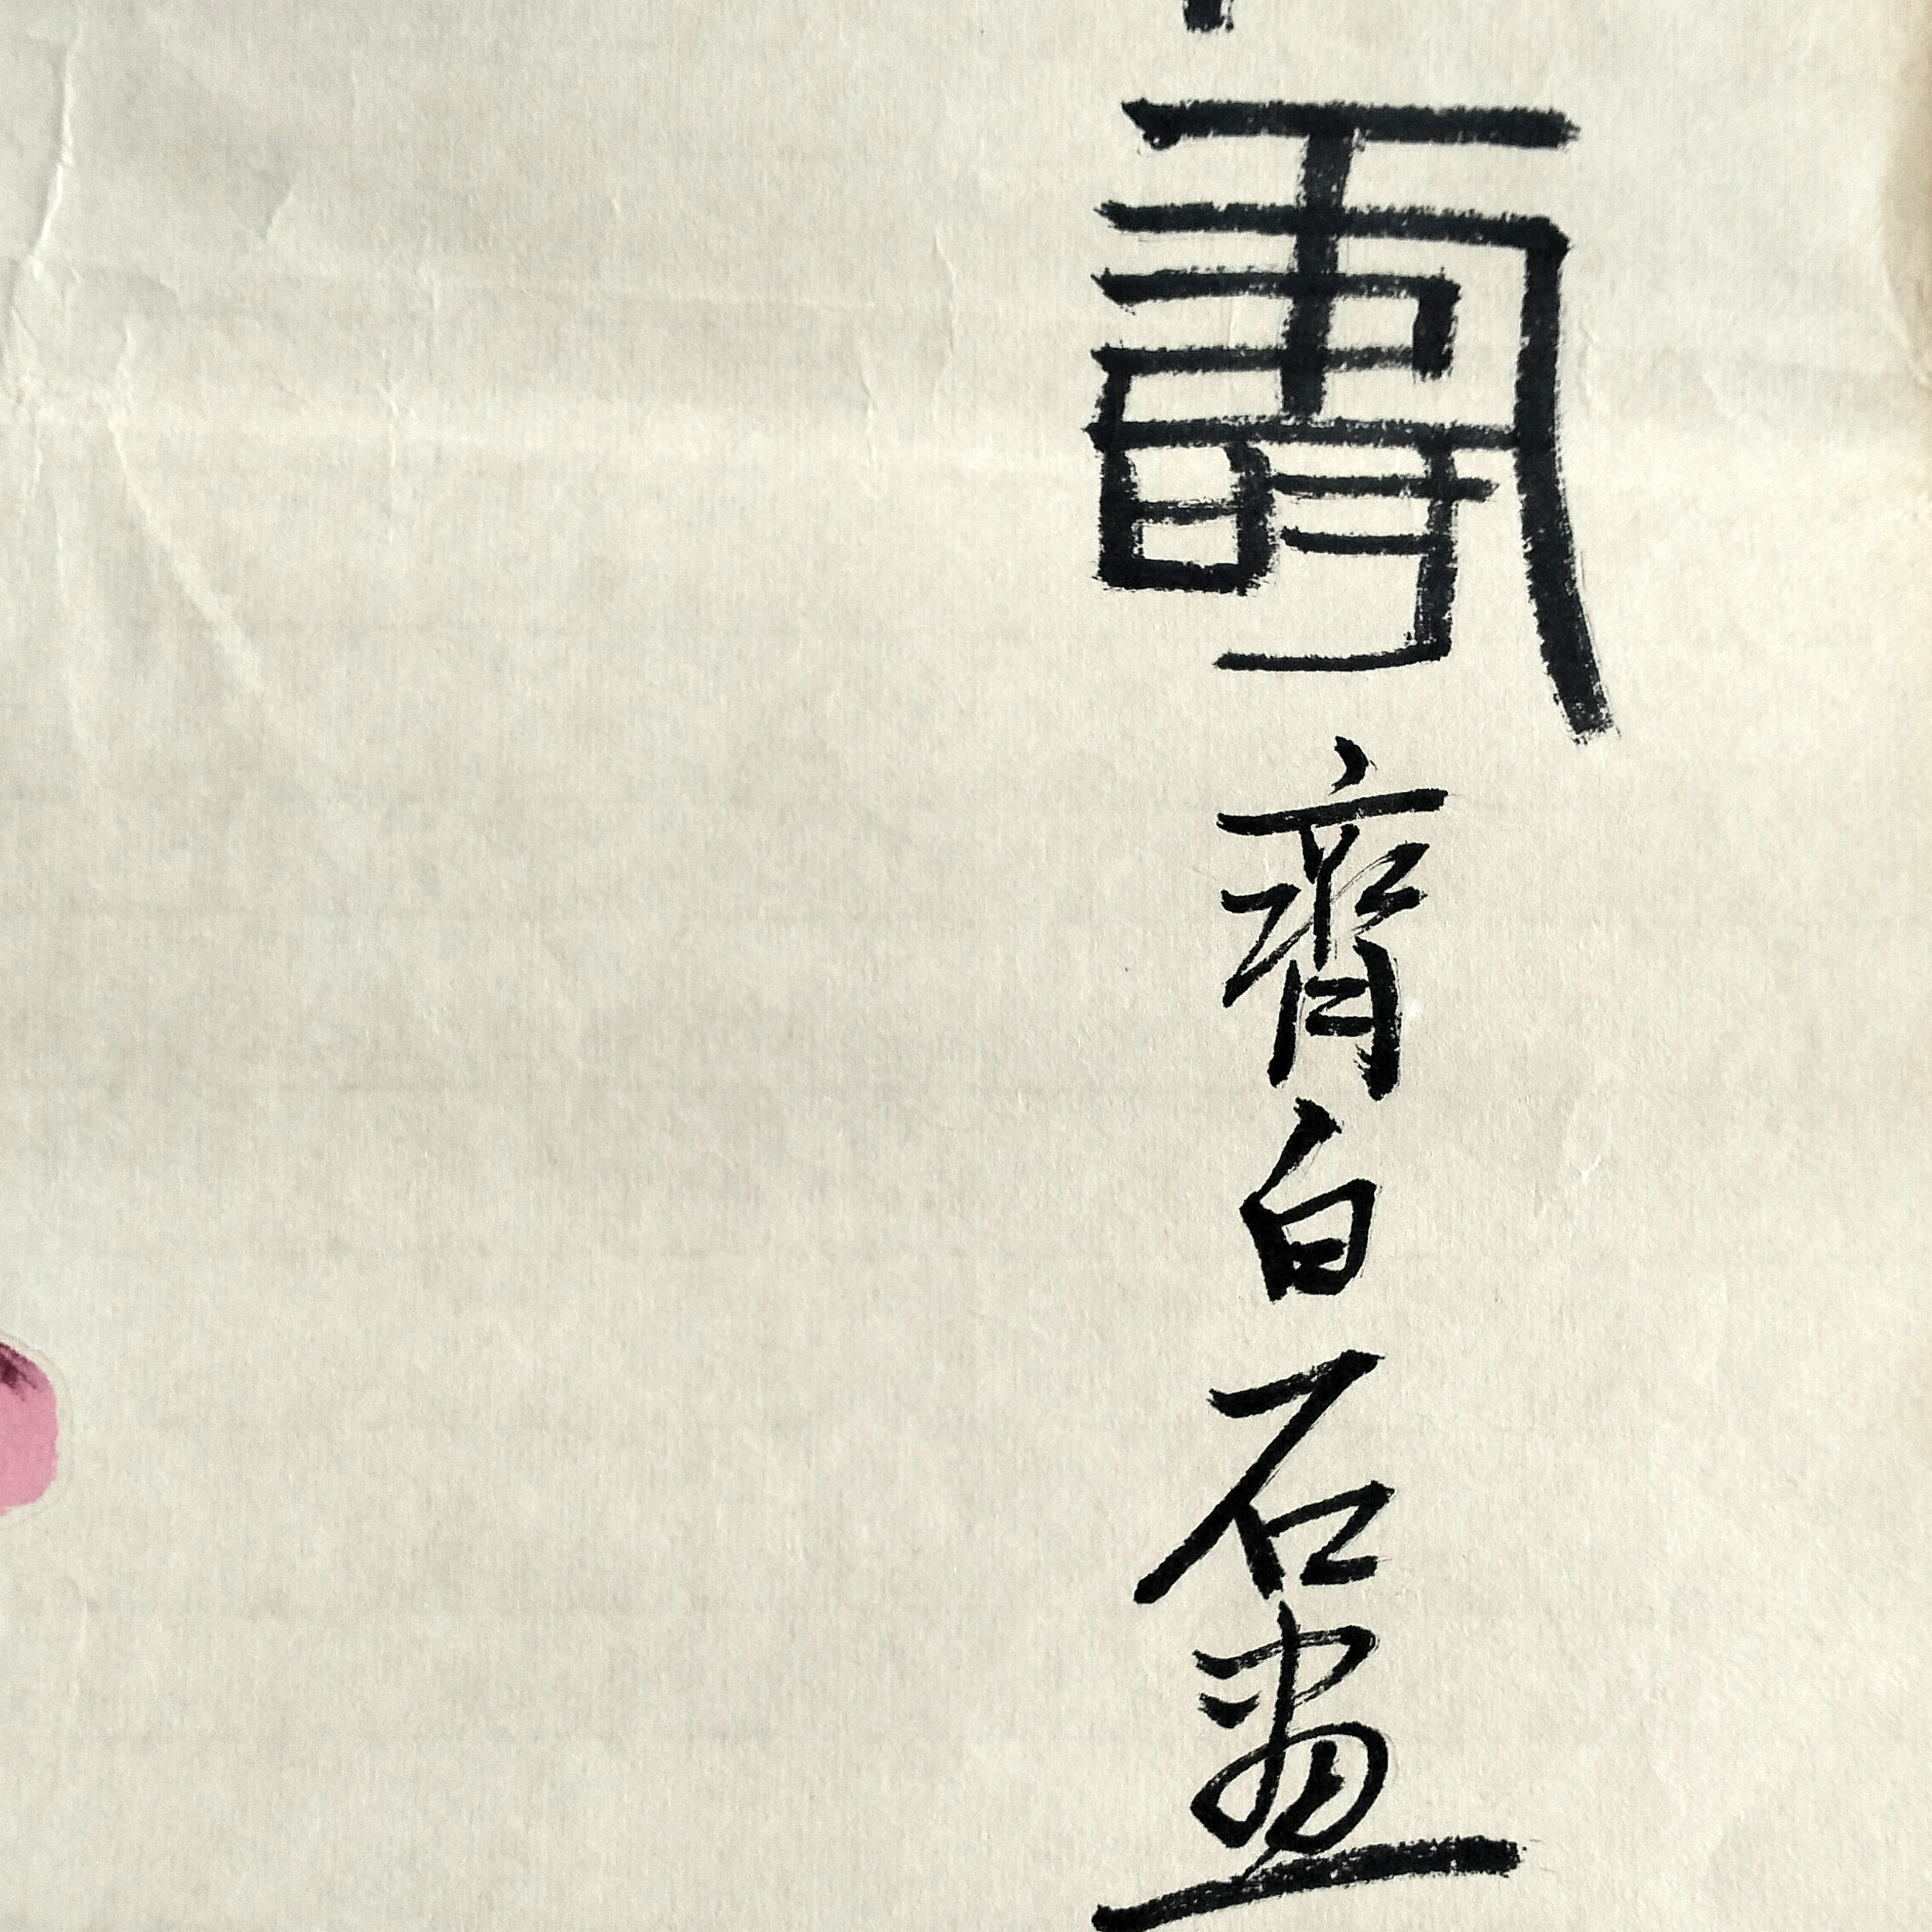 壽齊白石畫